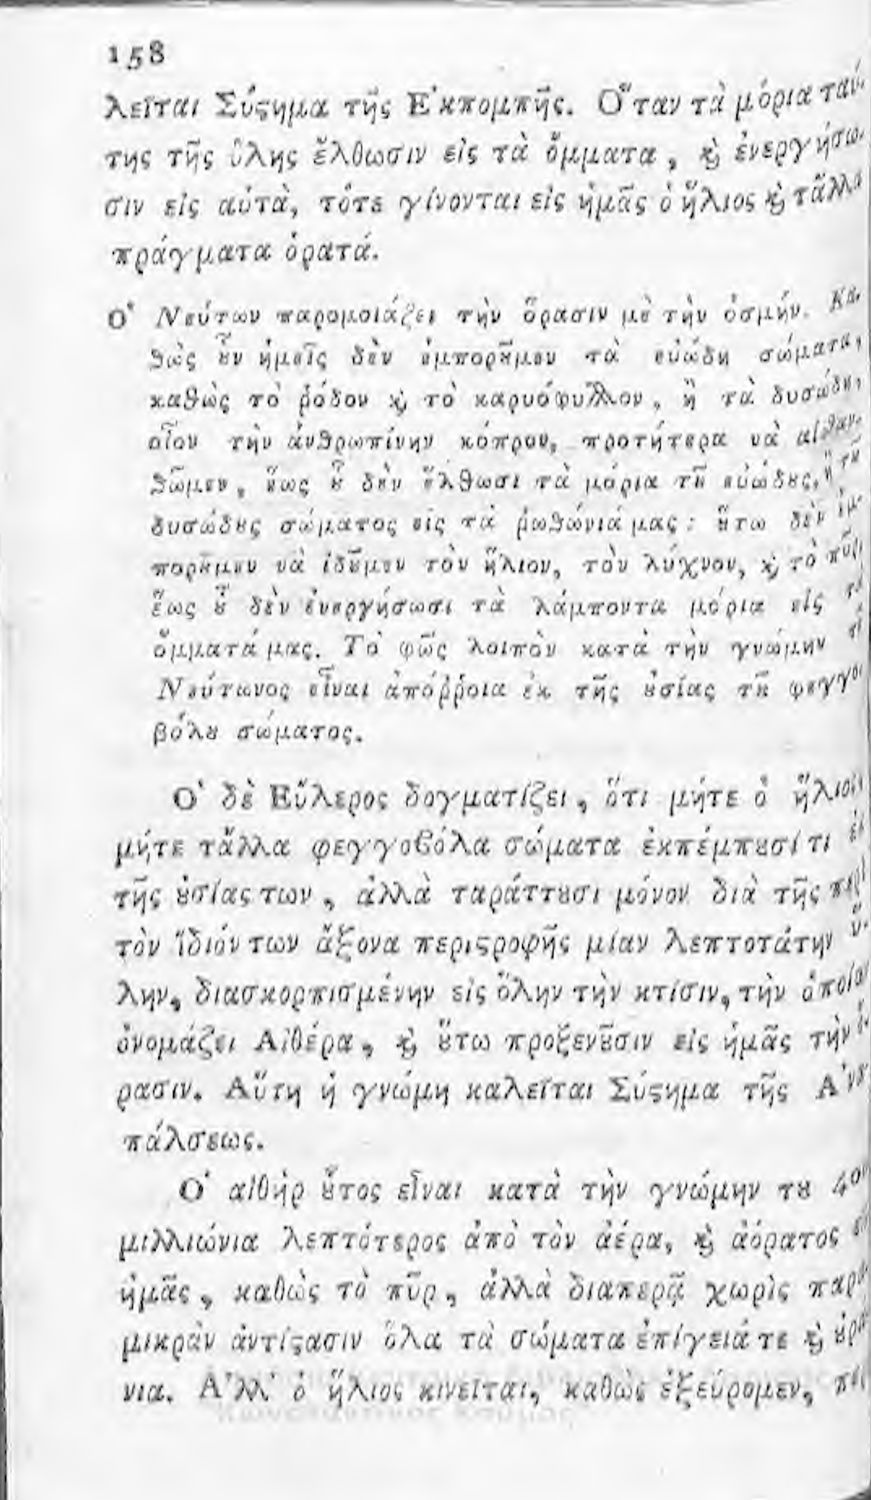 158
λεῖται Σύϛημα τῆς Ἐκπομπῆς. Ὅταν τὰ μόρια ταύ-
της τῆς ὕλης ἔλθωσιν εἰς τὰ ὄμματα, ϗ̀ ἐνεργήσω-
σιν εἰς αὐτὰ, τότε γίνονται εἰς ἡμᾶς ὁ ἥλιος ϗ̀ τἄλλα
πράγματα ὁρατά.
Ὁ Νεύτων παρομοιάζει τὴν ὅρασιν μὲ τὴν ὀσμήν. Κα-
ϑὼς ȣ̓͂ν ἡμεῖς δὲν ἐμπορȣ͂μεν τὰ εὐώδη σώματα,
καϑὼς τὸ ῥόδον ϗ̀ τὸ καρυόφυλλον, ἢ τὰ δυσώδη,
οἷον τὴν ἀνϑρωπίνην κόπρον, προτήτερα νὰ αἰσϑαν-
ϑῶμεν, ἕως ȣ̔͂ δὲν ἔλθωσι τὰ μόρια τȣ͂ εὐώδȣς, ἢ τȣ͂
δυσώδȣς σώματος εἰς τὰ ῥωϑώνιά μας: ȣ̔́τω δὲν ἐμ-
πορȣ͂μεν νὰ ἰδȣ͂μεν τὸν ἥλιον, τὸν λύχνον, ϗ̀ τὸ πῦρ,
ἕως ȣ̔͂ δὲν ἐνεργήσωσι τὰ λάμποντα μόρια εἰς τὰ
ὄμματά μας. Τὸ φῶς λοιπὸν κατὰ τὴν γνώμην τȣ͂
Νεύτωνος εἶναι ἀπόῤῥοια ἐκ τῆς ȣ̓σίας τȣ͂ φεγγο-
βόλȣ σώματος.
Ὁ δὲ Εὔλερος δογματίζει, ὅτι μήτε ὁ ἥλιος,
μήτε τἄλλα φεγγοβόλα σώματα ἐκπέμπȣσί τι ἐκ
τῆς ȣ̓σίας των, ἀλλὰ ταράττȣσι μόνον διὰ τῆς περὶ
τὸν ἴδιόν των ἄξονα περιϛροφῆς μίαν λεπτοτάτην ὕ-
λην, διασκορπισμένην εἰς ὅλην τὴν κτίσιν, τὴν ὁποίαν
ὀνομάζει Αἰθέρα, ϗ̀ ȣ̔́τω προξενȣ͂σιν εἰς ἡμᾶς τὴν ὅ-
ρασιν. Αὕτη ἡ γνώμη καλεῖται Σύϛημα τῆς Ἀνα-
πάλσεως.
Ὁ αἰθὴρ ȣ̔͂τος εἶναι κατὰ τὴν γνώμην τȣ 40
μιλλιώνια λεπτότερος ἀπὸ τὸν ἀέρα, ϗ̀ ἀόρατος εἰς
ἡμᾶς, καθὼς τὸ πῦρ, ἀλλὰ διαπερᾷ χωρὶς παρα-
μικρὰν ἀντίϛασιν ὅλα τὰ σώματα ἐπίγειά τε ϗ̀ ȣ̓ρά-
νια. Ἀλλ' ὁ ἥλιος κινεῖται, καθὼς ἐξεύρομεν,